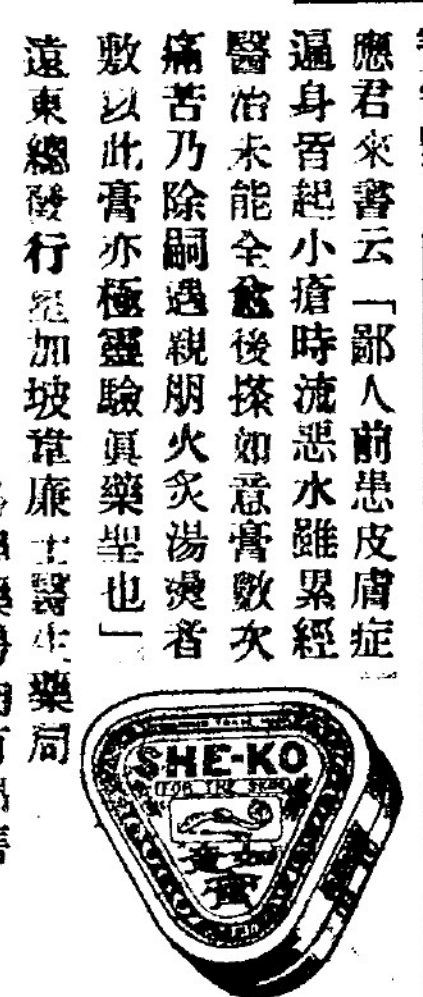 應君來書云「鄙人前患皮膚症
遍身皆起小瘡時流惡水雖累經
醫治未能全愈後搽如意膏數次
痛苦乃除嗣遇親朋火炙湯燙者
敷以此膏亦極靈驗眞藥聖也」
遠東總發行星加坡韋廉士醫生藥局
SHE-KO
FOR THE SKIN
如意
膏